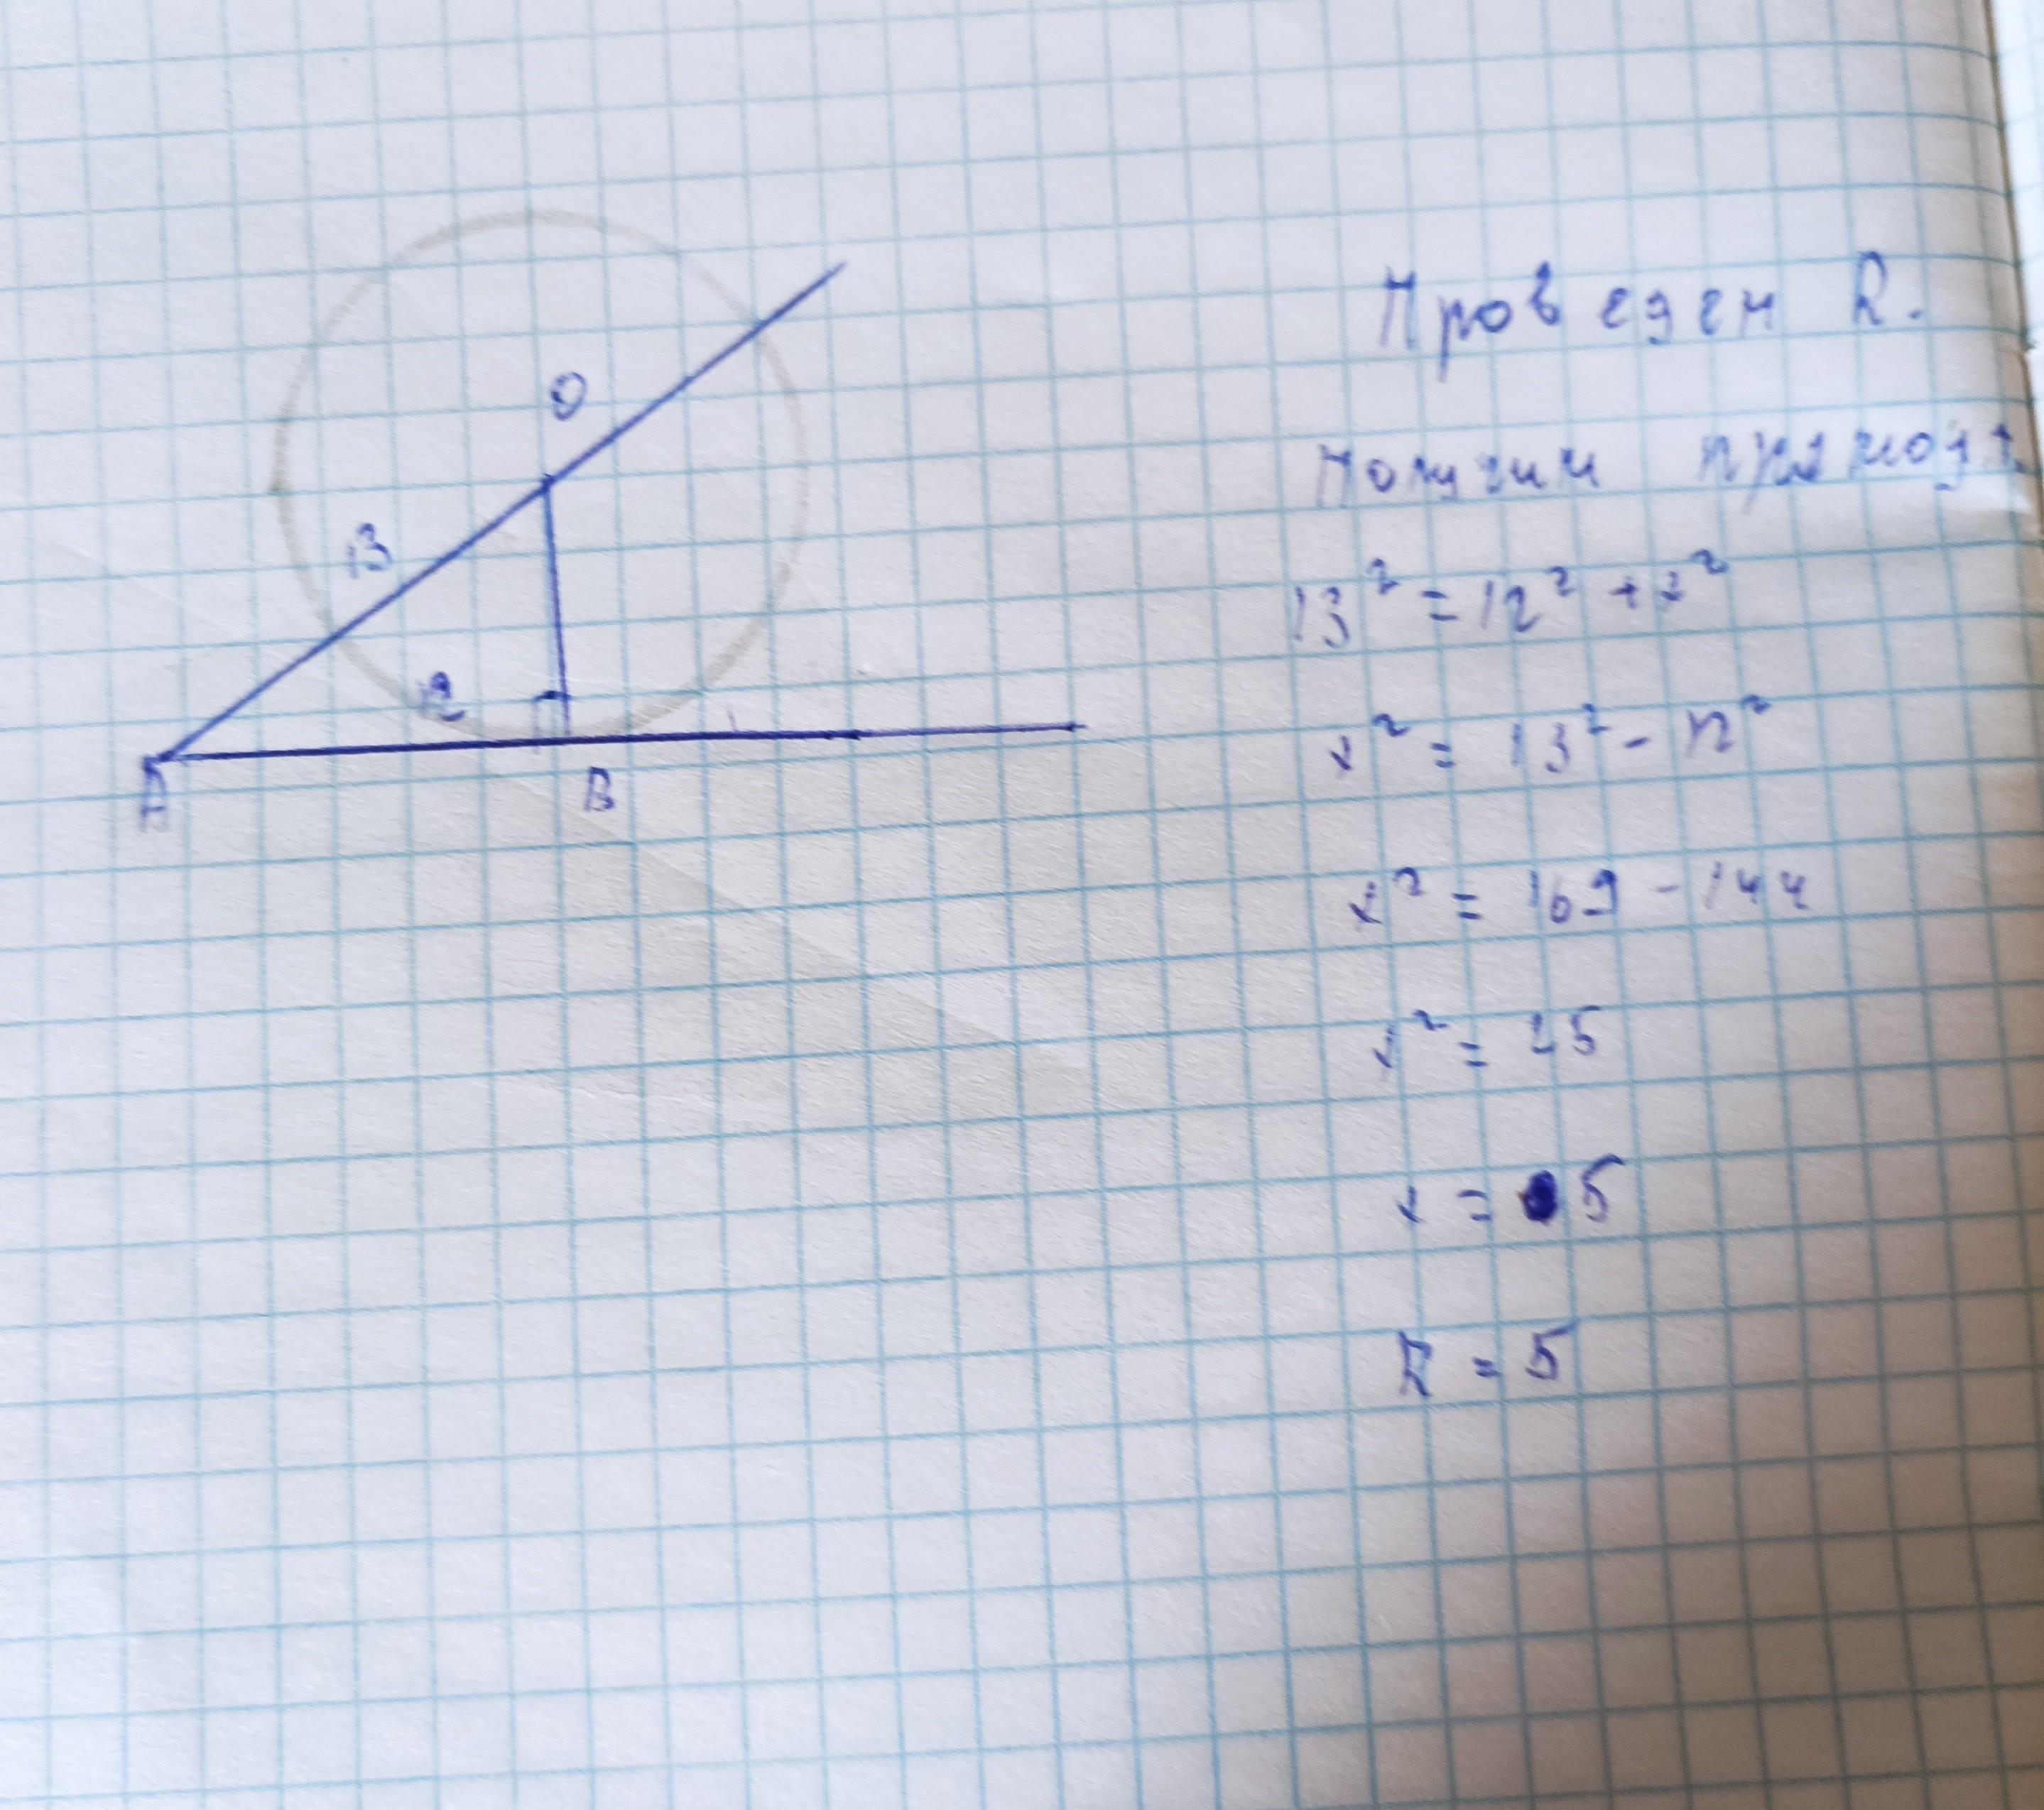 O
13
12
A
B
Проведем R.
Получим прямоуг.
13² = 12² + x²
x² = 13² - 12²
x² = 169 - 144
x² = 25
x = 5
R = 5